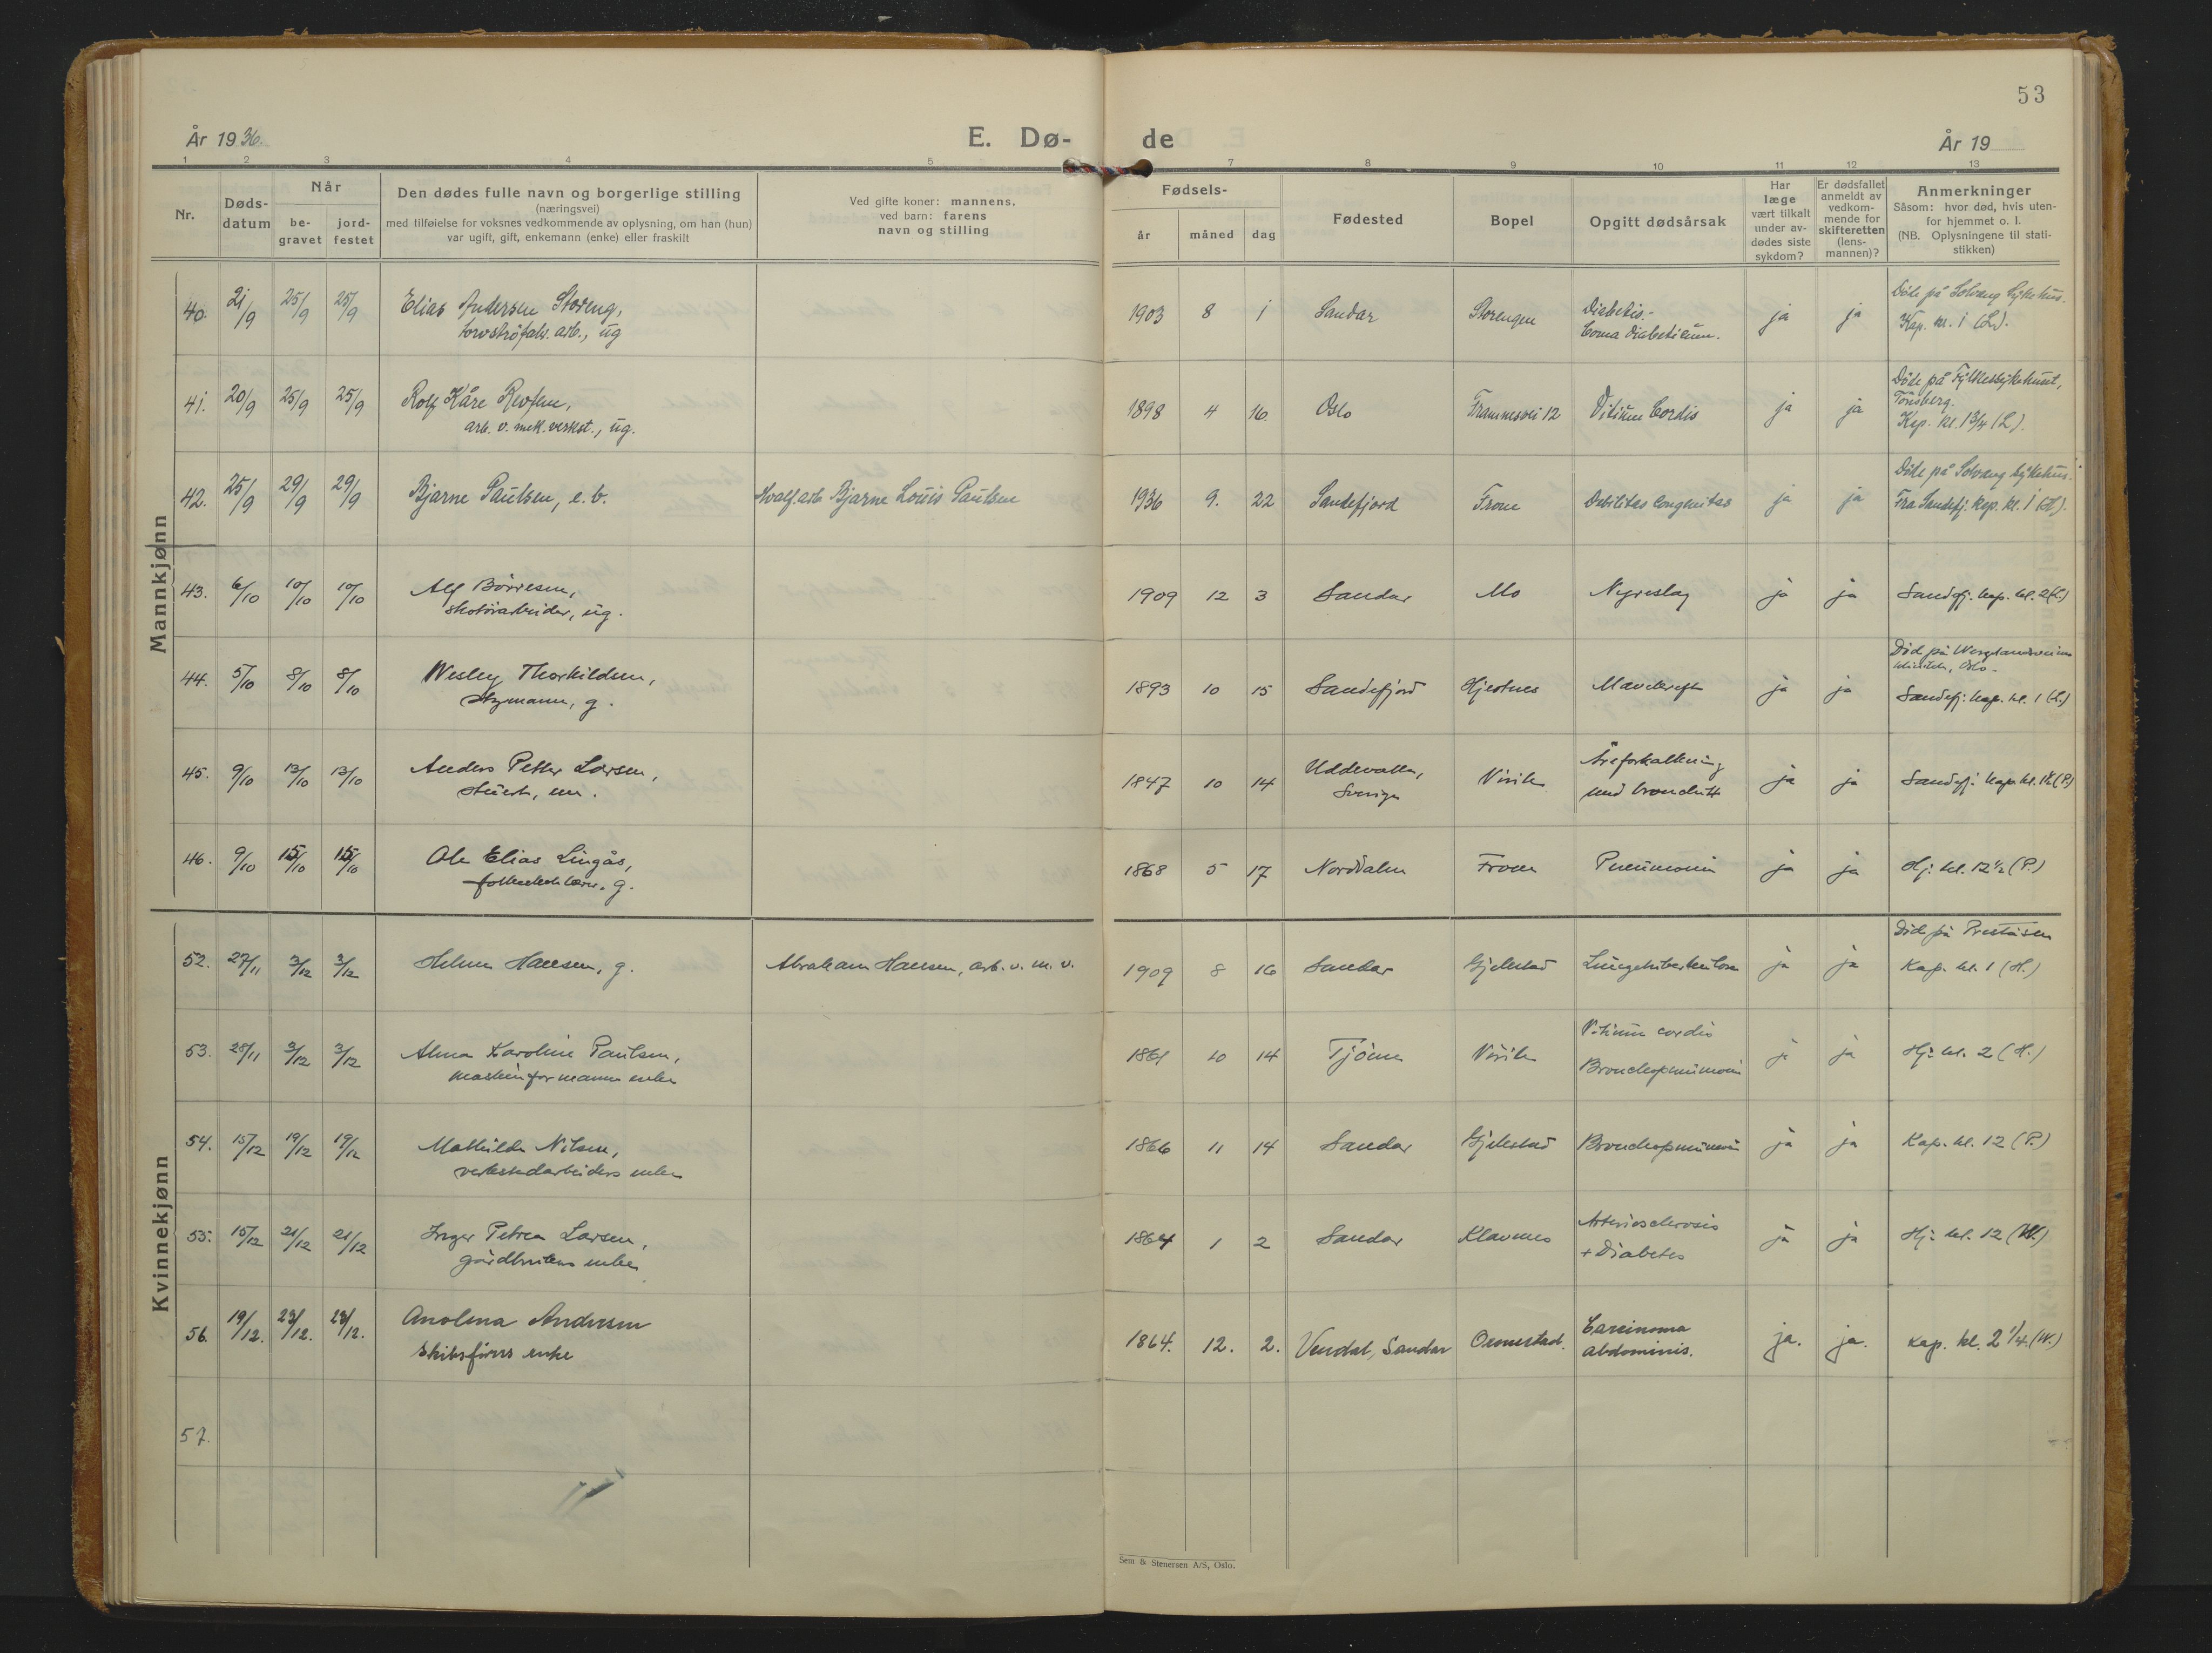 53
År 1936.
E. Dø-
de
År 19
1 2 3 4 5 7 8 9 10 11 12 13
Nr.
Døds-
datum
Når
be-
gravet
jord-
festet
Den dødes fulle navn og borgerlige stilling
(næringsvei)
med tilføielse for voksnes vedkommende av oplysning, om han (hun)
var ugift, gift, enkemann (enke) eller fraskilt
Ved gifte koner: mannens,
ved barn: farens
navn og stilling
Fødsels-
år måned dag
Fødested
Bopel
Opgitt dødsårsak
Har
læge
vært tilkalt
under av-
dødes siste
sykdom?
Er dødsfallet
anmeldt av
vedkom-
mende for
skifteretten
(lens-
mannen)?
Anmerkninger
Såsom: hvor død, hvis uten-
for hjemmet o. l.
(NB. Oplysningene til stati-
stikken)
Mannkjønn
40. 21/9 25/9 25/9 Elias Andersen Storeng,
arb., ug
1903 8 1 Sandar Storengen
Diabetis.-
Coma diabeticum.
ja ja
Døde på Solvang Sykehus.
Kap. kl. 1 (L).
41. 20/9 25/9 25/9 Rolf Kåre
arb. v. mek. verkst., ug.
1898 4 16. Oslo Framnesvei 12 Vitium Cordis ja ja
Døde på Fylkessykehuset,
Tønsberg.
Kap. kl. 13/4 (L).
42. 25/9 29/9 29/9 Bjarne Paulsen, e. b. Hvalf.arb. Bjarne Louis Paulsen
1936 9. 22 Sandefjord Debilitas Congenitas ja ja
Døde på Solvang Sykehus.
Fra Sandefj. kap. kl. 1 (H).
43. 6/10 10/10 10/10 Alf Børresen,
skotøiarbeider, ug.
1909 12 3 Sandar Mo ja ja Sandefj. kap. kl. 2 (L.)
44. 5/10 8/10 8/10 Wesley Thorkildsen,
g.
1893 10 15 Sandefjord Hjertnes Mavekreft ja ja
Død på
klinikk, Oslo.
Sandefj. kap. kl. 1 (L.)
45. 9/10 13/10 13/10 Anders Petter Larsen,
stuert, em.
1847 10 14 Uddevalla,
Sverige
Virik
Åreforkalkning
med bronchitt
ja ja Sandefj. kap. kl. (P.)
46. 9/10 15/10 15/10 Ole Elias Lingås,
g.
1868 5 17 Norddalen Pneumoni ja ja Hj. kl. 12 1/2 (P.)
Kvinnekjønn
52. 27/11 3/12 3/12 Hansen, g. Abraham Hansen, arb. v. m. v.
1909 8 16 Sandar Gjekstad Lungetuberkulose ja ja
Død på Preståsen
Kap. kl. 1 (H.)
53. 28/11 3/12 3/12 Alma Karoline Paulsen,
maskinformanns enke
1861 10 14 Tjøme Virik
Vitium cordis
Bronchopneumoni
ja ja Hj. kl. 2 (H.)
54. 15/12 19/12 19/12 Mathilde Nilsen,
verkstedarbeiders enke
1866 11 14 Sandar Gjekstad Bronchopneumoni ja ja Kap. kl. 12 (P.)
55. 15/12 21/12 21/12 Inger Petrea Larsen,
gårdbrukers enke
1864 1 2 Sandar Klavenes
Arteriosclerosis
+ Diabetes
ja ja Hj. kl. 12 (W.)
56. 19/12. 23/12. 23/12. Anolena Andersen
Skibsførers enke
1864. 12. 2. Vendal, Sandar Ormestad.
Carcinoma
abdominis.
ja. ja. kap. kl. 2 1/4. (W.)
57.
Sem & Stenersen A/S, Oslo.